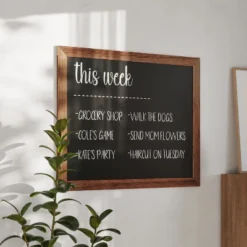 this week
-GROCERY SHOP
-COLE'S GAME
-KATE'S PARTY
-WALK THE DOGS
-SEND MOM FLOWERS
-HAIRCUT ON TUESDAY